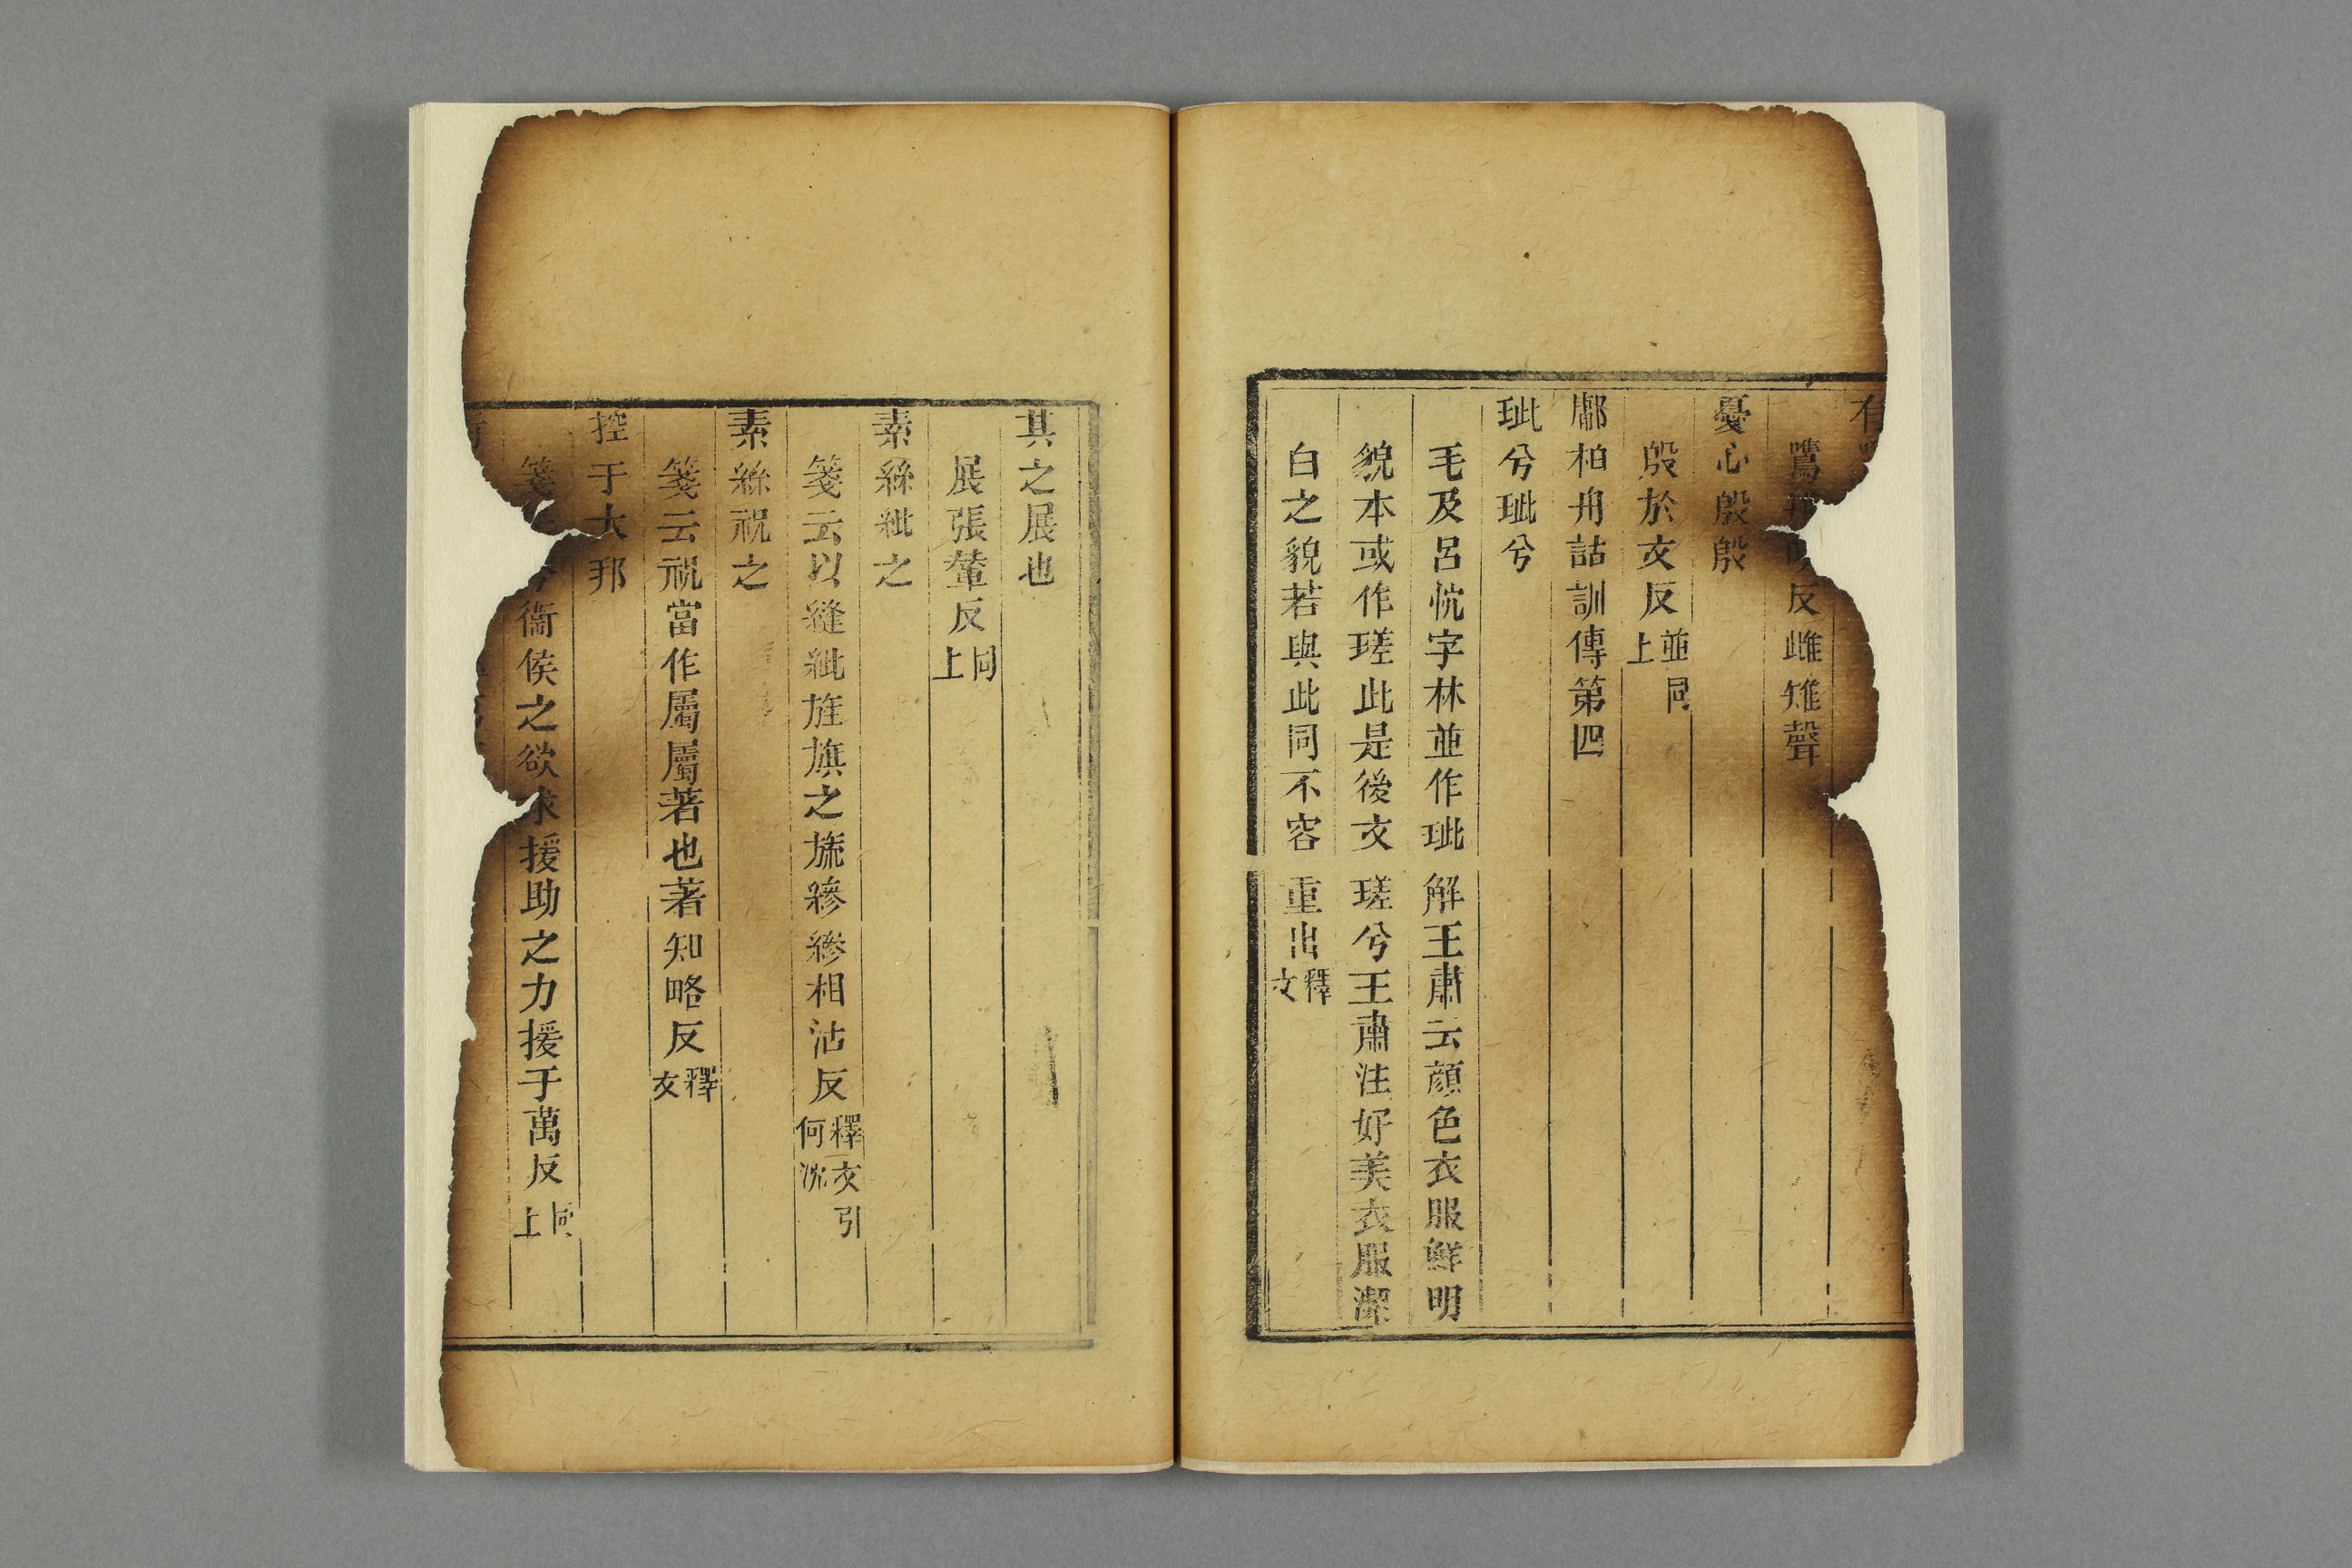 有
鷕 反雌雉聲
憂心殷殷
殷於文反並同上
鄘柏舟詁訓傳第四
玼兮玼兮
毛及呂忱字林並作玼解王肅云顏色衣服鮮明
貌本或作瑳此是後文瑳兮王肅注好美衣服潔
白之貌若與此同不容重出釋文
其之展也
展張輦反同上
素絲紕之
箋云以縫紕旌旗之旒縿縿相沾反釋文引沈何
素絲祝之
箋云祝當作屬屬著也著知略反釋文
控于大邦
箋 衞侯之欲求援助之力援于萬反同上